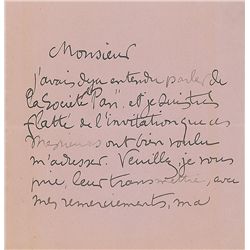 Monsieur
j'avais deja entendu parler de
la Société "Pan" et je suis tres
flatté de l'invitation que ces
Messieurs ont bien voulu
m'adresser. Veuillez, je vous
prie, leur transmettre, avec
mes remerciements, ma